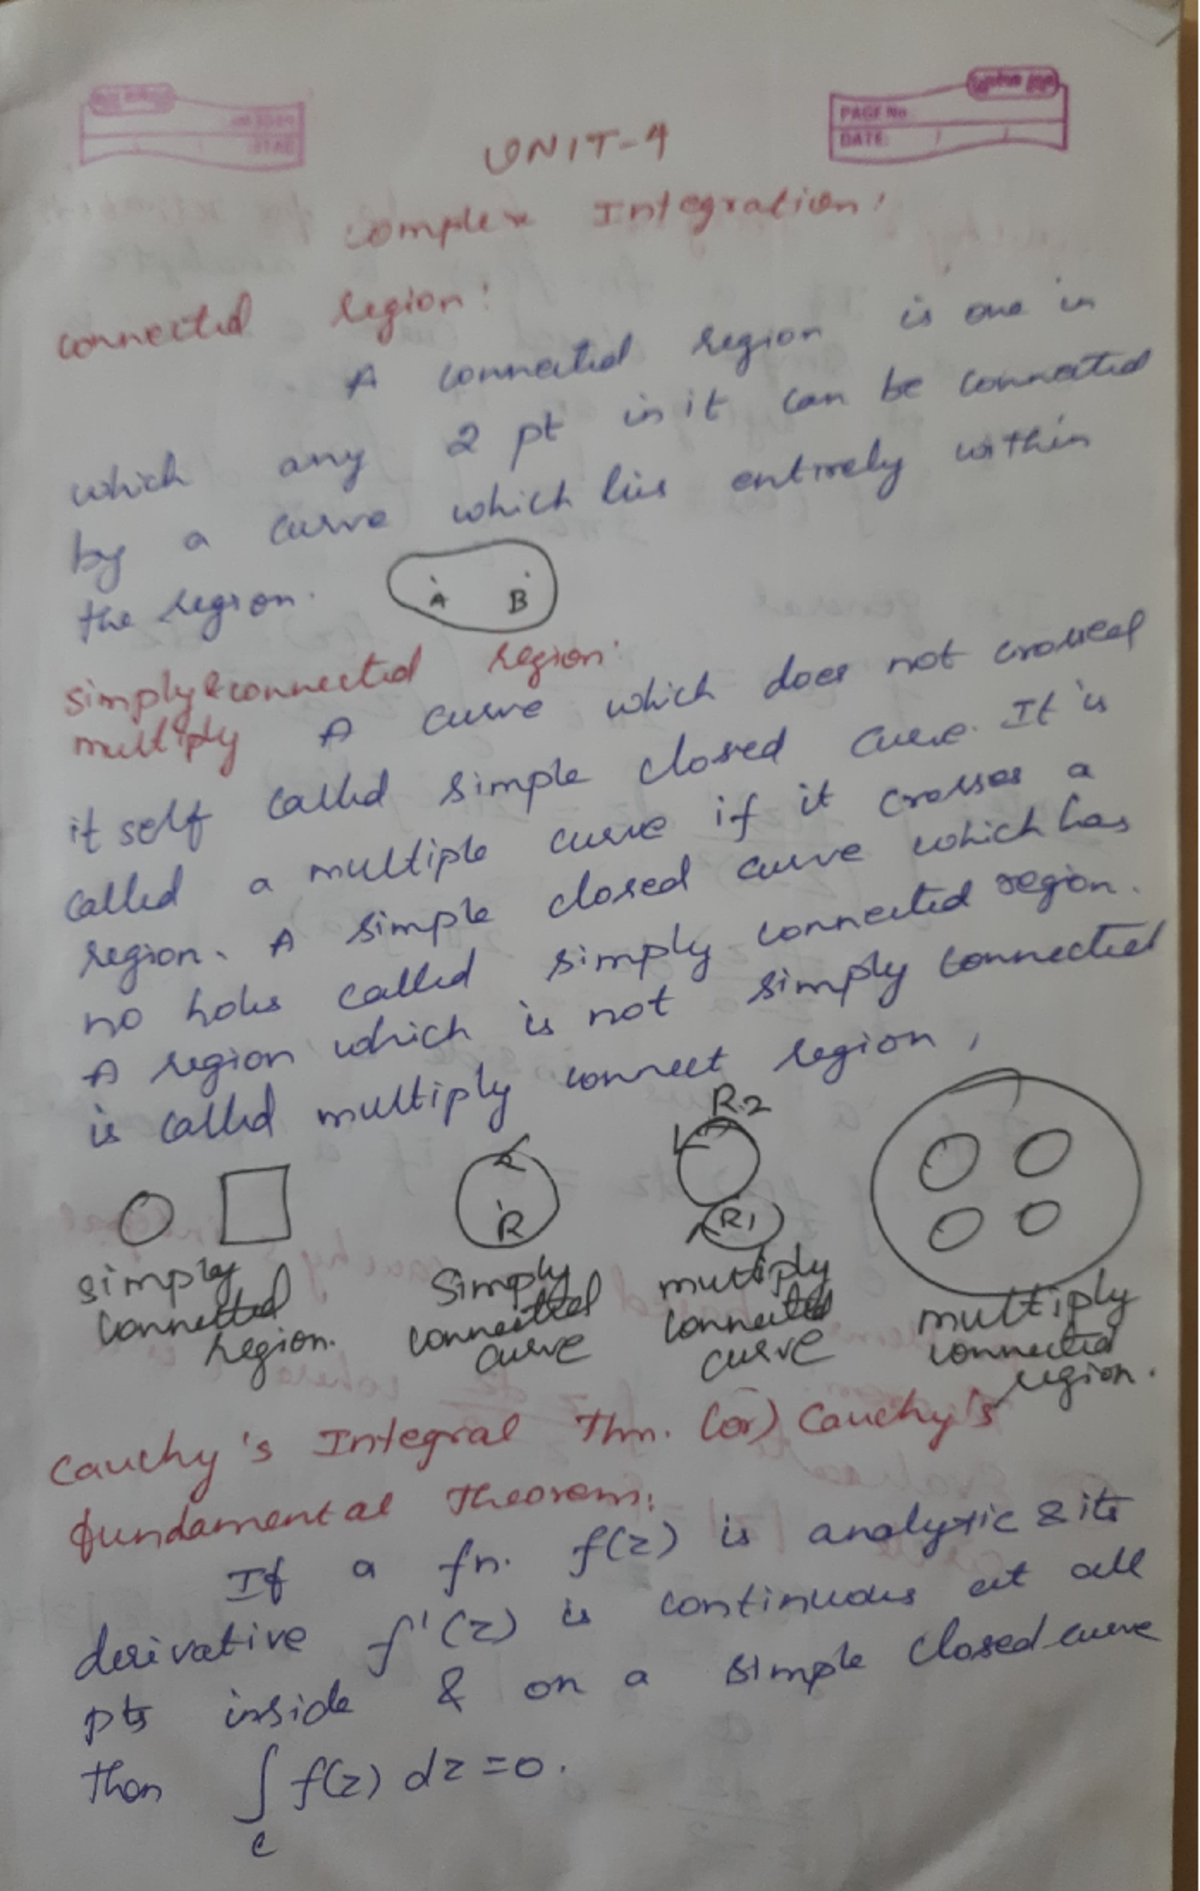 PAGE No
DATE:
UNIT-4
complex Integration:
connected region:
A connected region is one in
which any 2 pt in it can be connected
by a curve which lies entirely within
the region.
A B
simply & connected region:
multiply A curve which does not crossed
it self called simple closed curve. It is
called a multiple curve if it crosses a
region. A simple closed curve which has
no holes called simply connected region.
A region which is not simply connected
is called multiply connect region,
R2
R
R1
simply
connected
region.
Simply
connected
curve
multiply
connected
curve
multiply
connected
region.
Cauchy's Integral Thm. (or) Cauchy's
fundamental Theorem:
If a fn. f(z) is analytic & its
derivative f'(z) is continuous at all
pts inside & on a simple closed curve
then ∫ f(z) dz = 0.
c